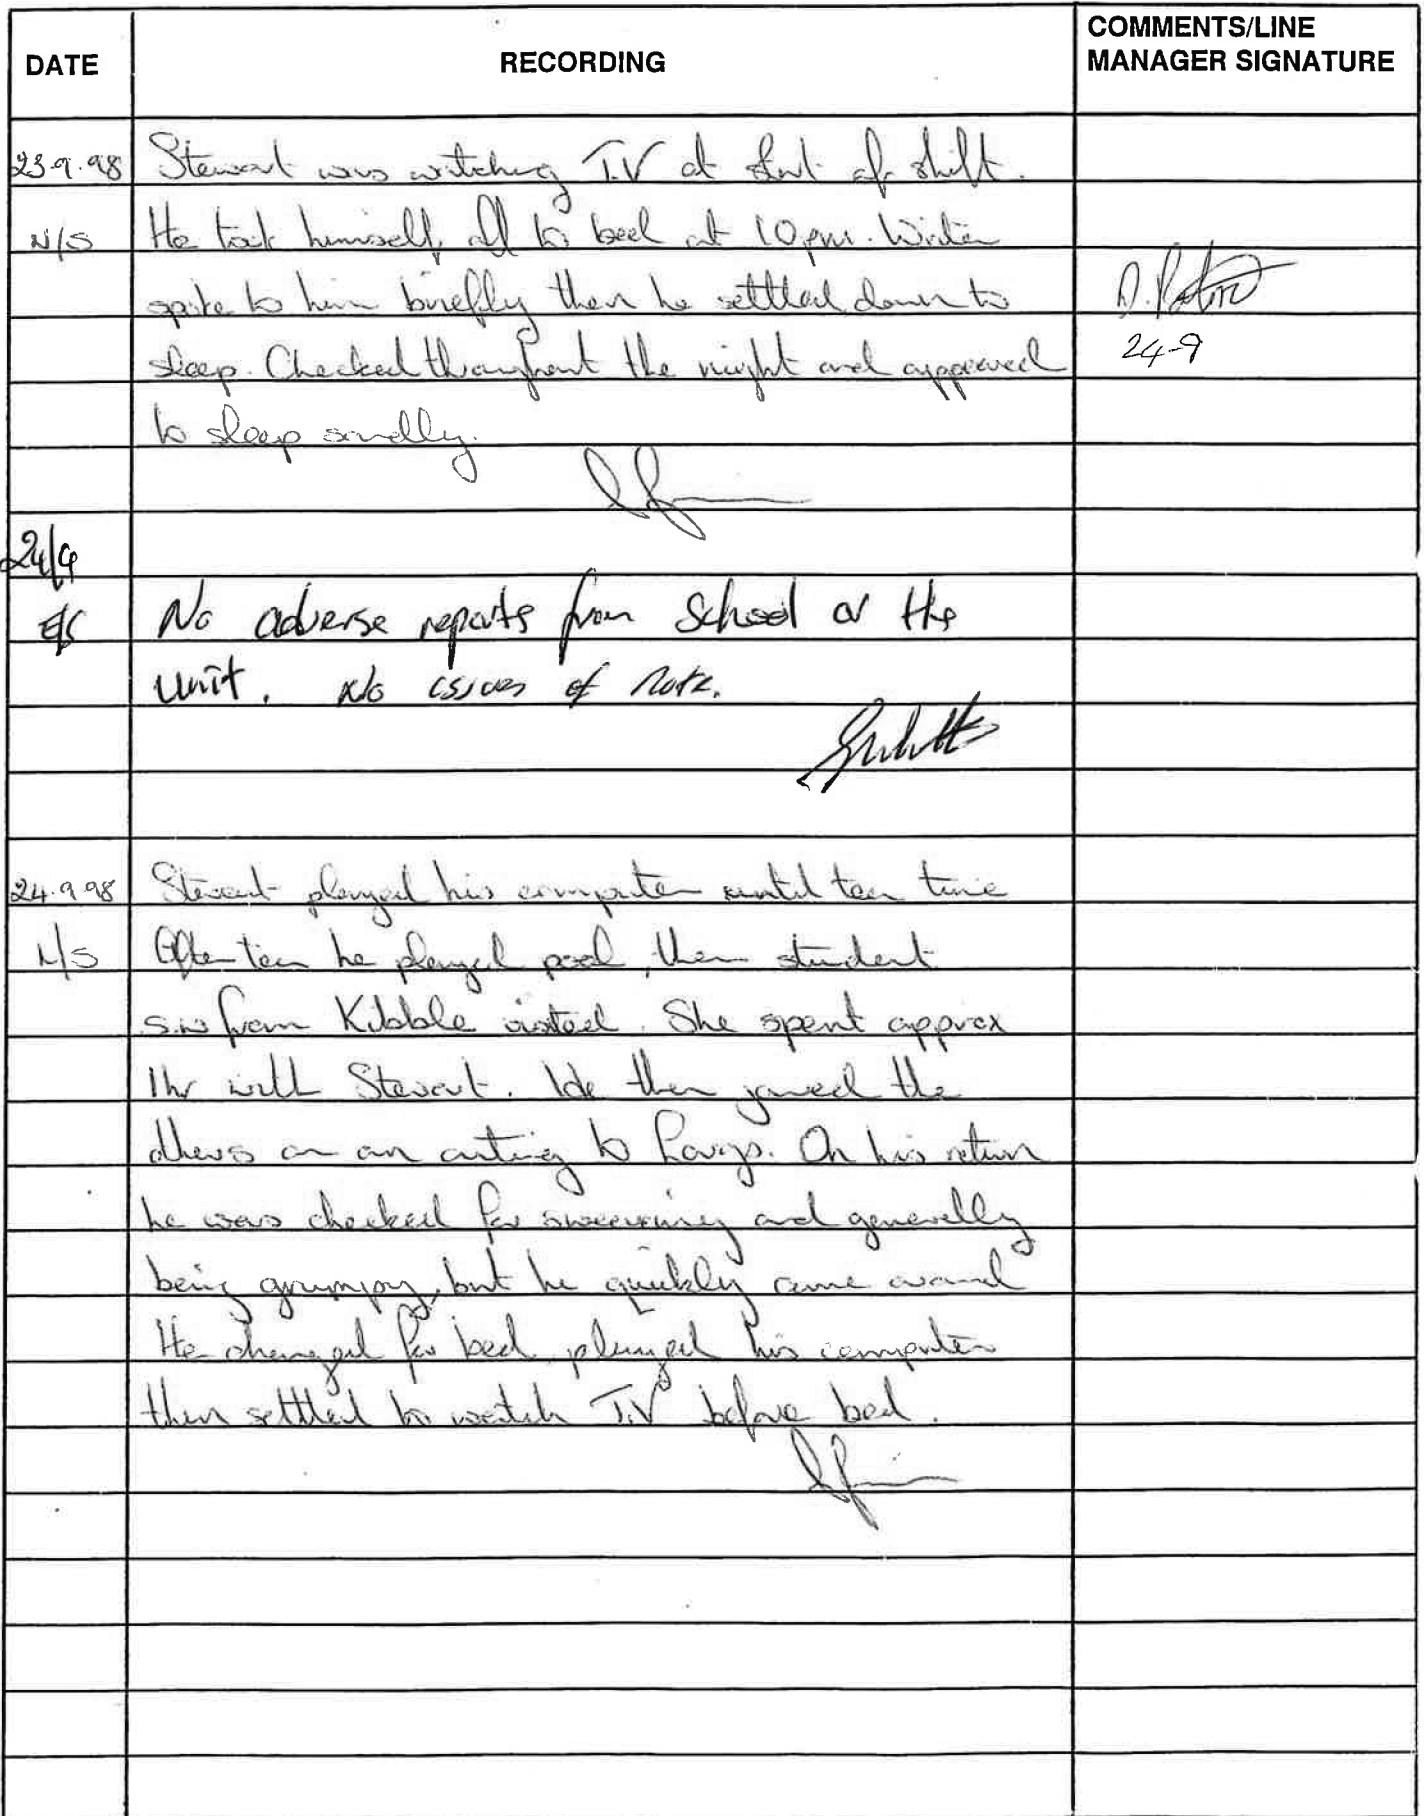 DATE RECORDING COMMENTS/LINE MANAGER SIGNATURE
23.9.98 Stewart was watching T.V at start of shift.
N/S He took himself off to bed at 10pm. Writer
spoke to him briefly then he settled down to
sleep. Checked throughout the night and appeared
24-9
to sleep soundly.
24/9
E/S No adverse reports from School or the
unit. No issues of note.
24.9.98 Stewart played his computer until tea time
L/S After tea he played pool, then student
s.w from Kibble visited. She spent approx
1hr with Stewart. He then joined the
others on an outing to Largs. On his return
he was checked for swearing and generally
being grumpy, but he quickly came around
He changed for bed, played his computer
then settled to watch T.V before bed.